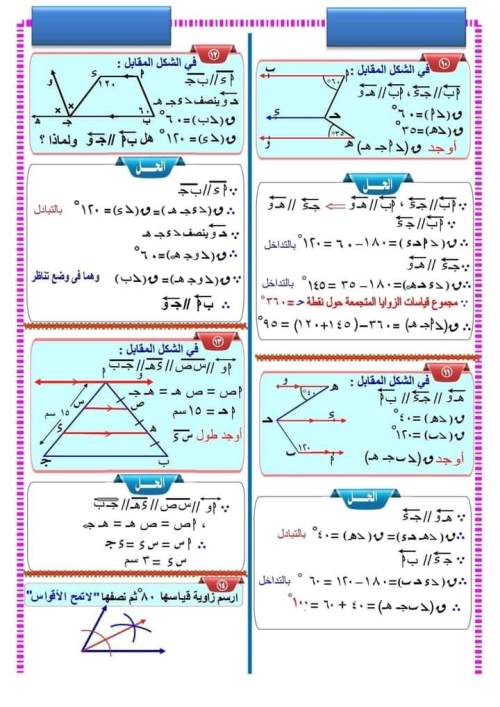 ١٠
في الشكل المقابل :
أب // جـ د ، أب // هـ و
ق(د أ) = ٦٠°
ق(د هـ) = ٣٥°
أوجد ق(د أ جـ هـ)
ب
أ
٦٠°
د
حـ
و
٣٥°
هـ
الحل
∵ أب // جـ د ، أب // هـ و ⇐ جـ د // هـ و
∵ أب // جـ د
∴ ق(د أ حـ د) = ١٨٠ − ٦٠ = ١٢٠° بالتداخل
∵ جـ د // هـ و
∴ ق(د د حـ هـ) = ١٨٠ − ٣٥ = ١٤٥° بالتداخل
∵ مجموع قياسات الزوايا المتجمعة حول نقطة حـ = ٣٦٠°
∴ ق(د أ جـ هـ) = ٣٦٠ − (١٤٥ + ١٢٠) = ٩٥°
١١
في الشكل المقابل :
هـ و // جـ د // ب أ
ق(د هـ) = ٤٠°
ق(د ب) = ١٢٠°
أوجد ق(د ب جـ هـ)
و
هـ
٤٠°
حـ
د
ب
١٢٠
أ
الحل
∵ هـ و // جـ د
∴ ق(د هـ حـ د) = ق(د هـ) = ٤٠° بالتبادل
∵ جـ د // ب أ
∴ ق(د د حـ ب) = ١٨٠ − ١٢٠ = ٦٠° بالتداخل
∴ ق(د ب جـ هـ) = ٤٠ + ٦٠ = ١٠٠°
١٢
في الشكل المقابل :
أ د // ب جـ
جـ و ينصف د د جـ هـ
ق(د ب) = ٦٠°
ق(د د) = ١٢٠° هل ب أ // جـ و ولماذا ؟
و
د
أ
١٢٠
٦٠
هـ
جـ
ب
الحل
∵ أ د // ب جـ
∴ ق(د د جـ هـ) = ق(د د) = ١٢٠° بالتبادل
∵ جـ و ينصف د د جـ هـ
∴ ق(د و جـ هـ) = ٦٠°
∵ ق(د و جـ هـ) = ق(د ب) وهما فى وضع تناظر
∴ ب أ // جـ و
١٣
في الشكل المقابل :
أ و // س ص // د هـ // جـ ب
أ ص = ص هـ = هـ جـ
أ حـ = ١٥ سم
أوجد طول س د
و
أ
س
ص
١٥ سم
د
هـ
جـ
ب
الحل
∵ أ و // س ص // د هـ // جـ ب
، أ ص = ص هـ = هـ جـ
∴ أ س = س د = د جـ
س د = ٣ سم
١٤
ارسم زاوية قياسها ٨٠° ثم نصفها "لاتمح الأقواس"